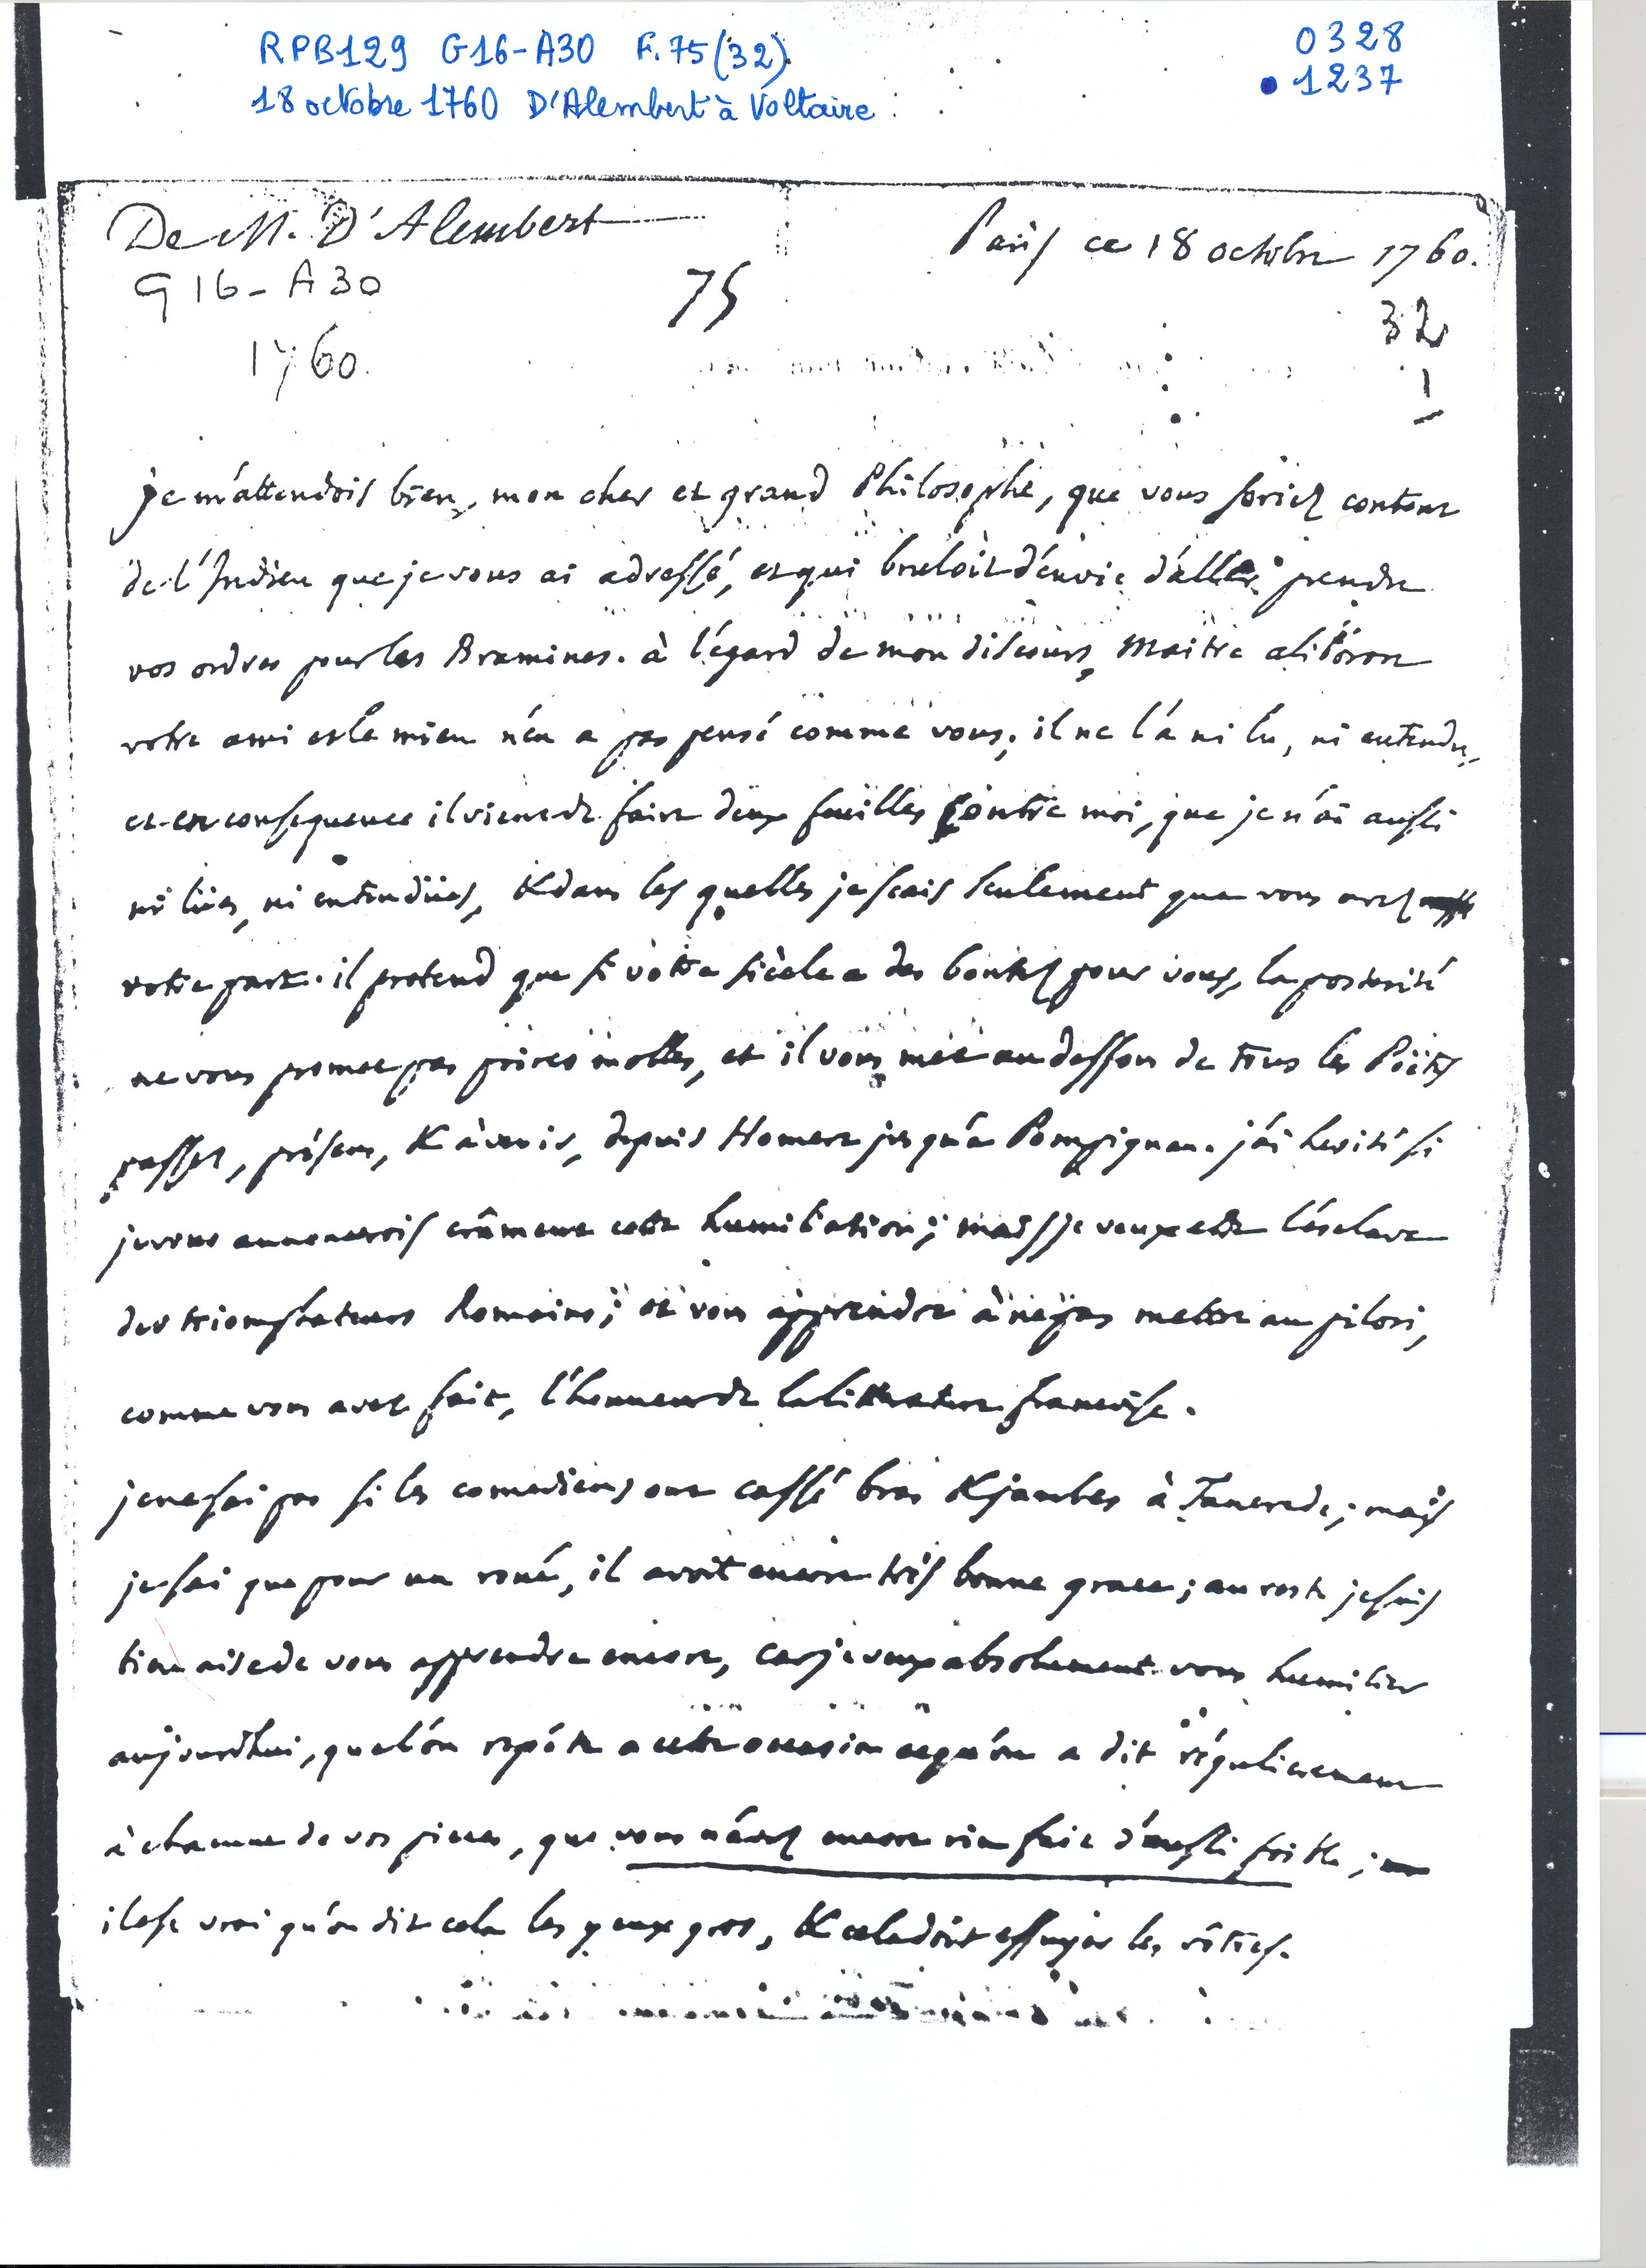 RPB129 G16-A30 F.75(32)
0328
18 octobre 1760 D'Alembert à Voltaire
1237
De M. D'Alembert
Paris ce 18 octobre 1760.
G16-A30
75
32
1760.
1
je m'attendois bien, mon cher et grand Philosophe, que vous seriez content
de l'Indien que je vous ai adressé, et qui bruloit d'envie d'aller prendre
vos ordres pour les Bramines. à l'égard de mon discours, maitre aliboron
votre ami et le mien n'en a pas pensé comme vous; il ne l'a ni lu, ni entendu,
et en consequence il vient de faire deux feuilles contre moi, que je n'ai aussi
ni lües, ni entendües, & dans les quelles je scais seulement que vous avez
votre part. il pretend que si votre siècle a des bontez pour vous, la posterité
ne vous promet pas poires molles, et il vous met au dessous de tous les Poëtes
passez, présens, & à venir, depuis Homere jusqu'à Pompignan. j'ai hesité si
je vous annoncerois crûment cette humiliation; mais je veux etre l'esclave
des triomphateurs Romains; et vous apprendre à ne pas mettre au pilori,
comme vous avez fait, l'honneur de la littérature francoise.
je ne sai pas si les comediens ont cassé bras & jambes à Tancrede; mais
je sai que pour un roué, il avoit encore très bonne grace; au reste je suis
bien aise de vous apprendre encore, car je veux absolument vous humilier
aujourdhui, que l'on repéte a cette occasion ce qu'on a dit régulierement
à chacune de vos pieces, que vous n'avez encore rien fait d'aussi foible;
il est vrai qu'on dit cela les yeux gros, & cela doit essuyer les vôtres.